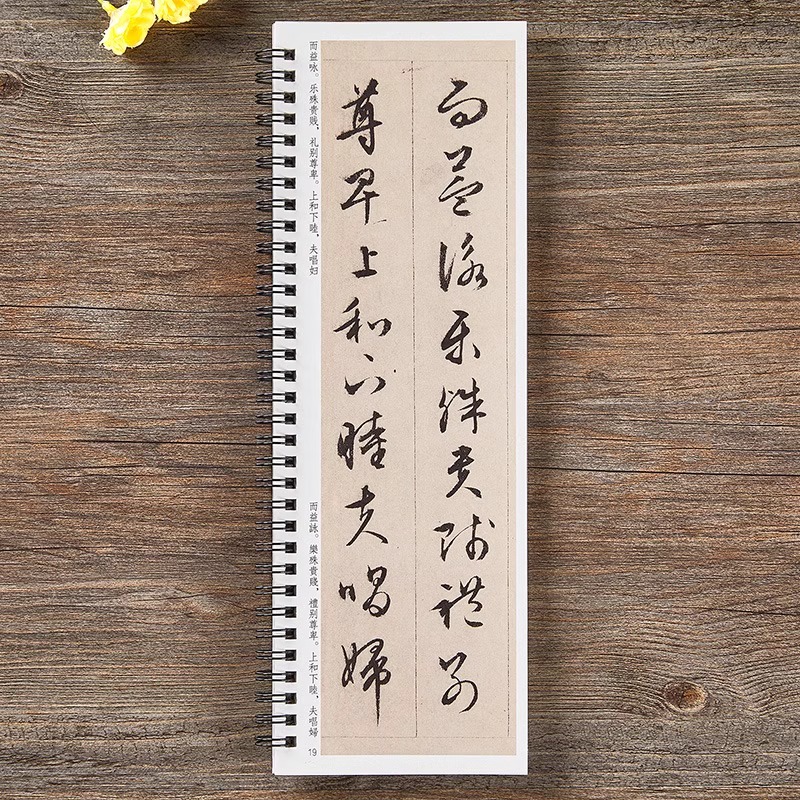 而益詠樂殊貴賤禮别
尊卑上和下睦夫唱婦
而益咏。乐殊贵贱，礼别尊卑。上和下睦，夫唱妇
而益詠。樂殊貴賤，禮别尊卑。上和下睦，夫唱婦
19